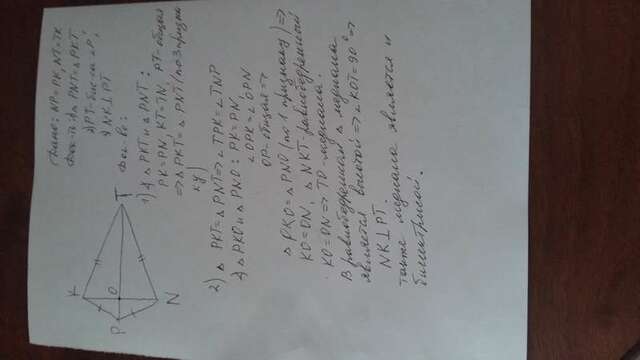 Дано: NP=PK, NT=TK
Док-ть: 1) △PNT=△PKT
2) PT-бис-са ∠P;
3) NK⊥PT
K
P
O
T
N
Док-во:
1) △PKT и △PNT:
PK=PN, KT=TN, PT-общая
=> △PKT=△PNT (по 3 призна
ку)
2) △PKT=△PNT => ∠TPK=∠TNP
△PKO и △PNO: PK=PN,
∠OPK=∠OPN
OP-общая =>
△PKO=△PNO (по 1 признаку) =>
KO=ON, △NKT-равнобедренный
KO=ON => TO-медиана.
В равнобедренном △ медиана
является высотой => ∠KOT=90° =>
NK⊥PT.
также медиана является и
биссектрисой.